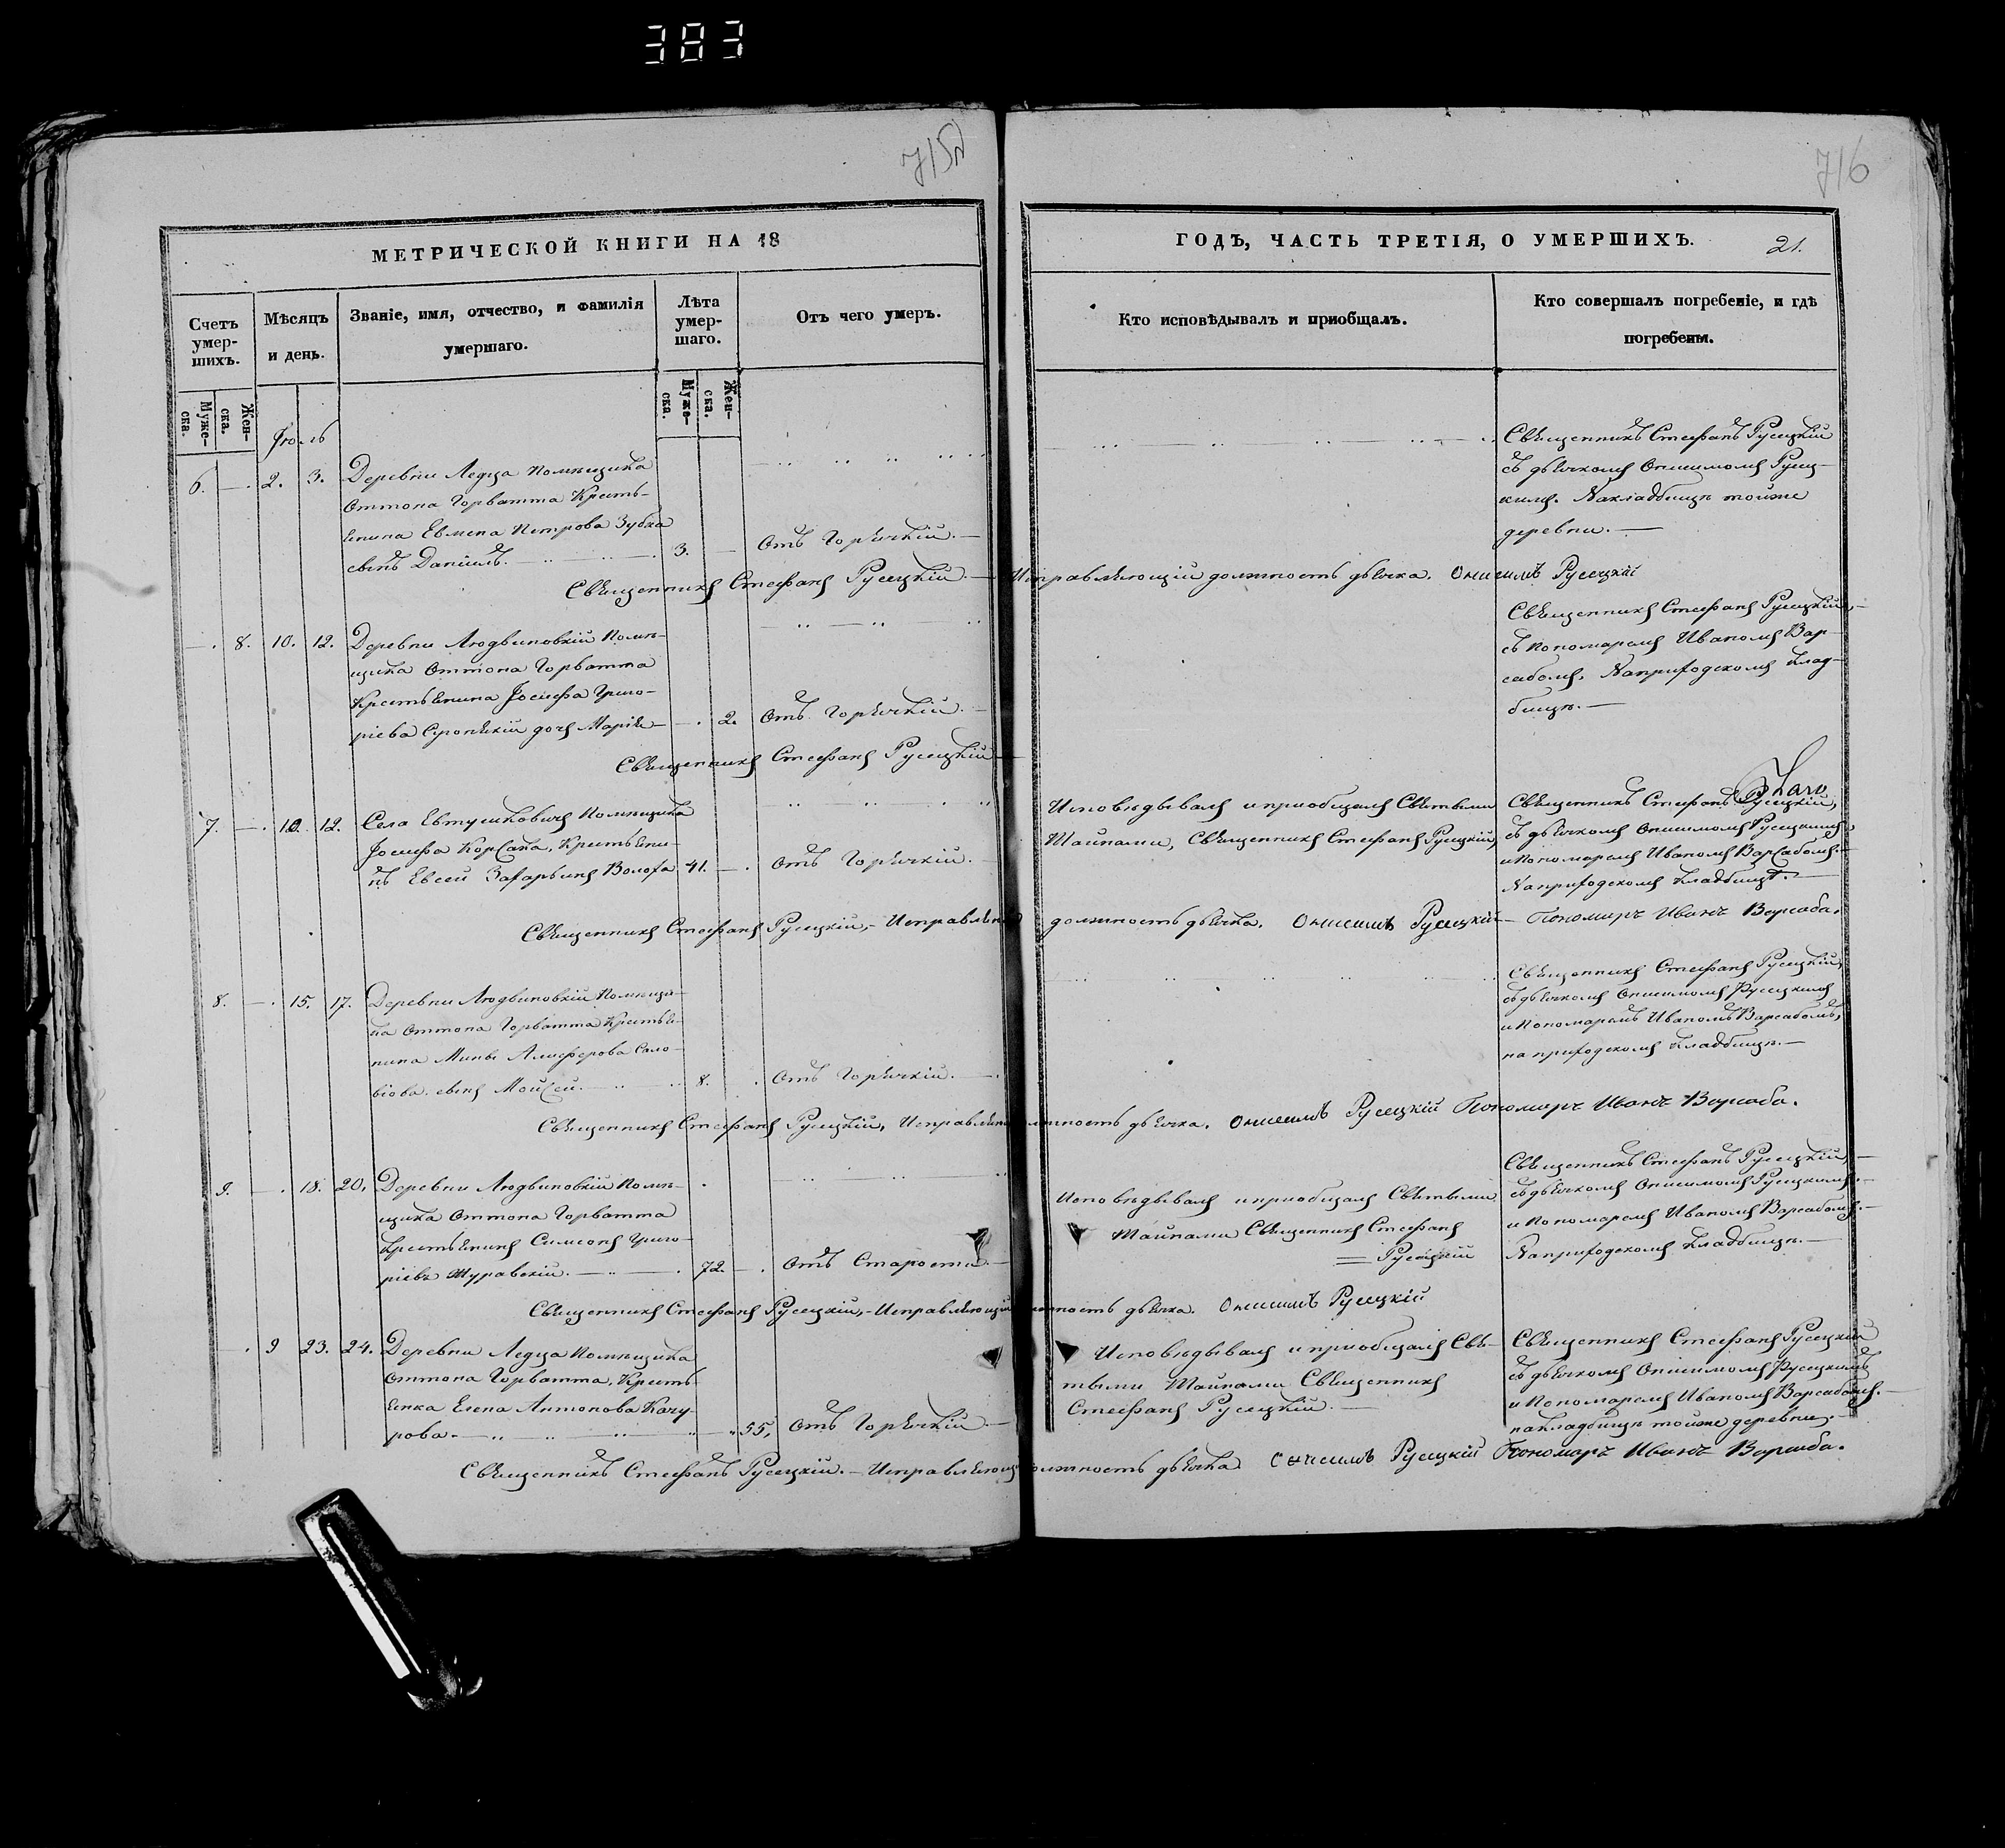 383
715
716
МЕТРИЧЕСКОЙ КНИГИ НА 18
ГОДЪ, ЧАСТЬ ТРЕТІЯ, О УМЕРШИХЪ.
21.
Счетъ умер-
шихъ.
Мѣсяцъ
и день.
Званіе, имя, отчество, и фамилія
умершаго.
Лѣта
умер-
шаго.
Отъ чего умеръ.
Кто исповѣдывалъ и пріобщалъ.
Кто совершалъ погребеніе, и гдѣ
погребены.
Муже-
ска.
Жен-
ска.
Муже-
ска.
Жен-
ска.
6. 2. 3. Деревни Ледца Помѣщика
Оттона Горватта Кресть-
янина Евмена Петрова Зубка
сынъ Даніилъ. 3. Отъ Горячкій.
Священникъ Стефанъ Русецкій
съ дьячкомъ Онисимомъ Русец-
кимъ. На кладбищѣ тойже
деревни.
Священникъ Стефанъ Русецкій. Исправляющій должность дьячка. Онисимъ Русецкій
8. 10. 12. Деревни Людвиновкій Помѣ-
щика Оттона Горватта
Крестьянина Іосифа Григо-
ріева дочь Марія 2. Отъ Горячкій.
Священникъ Стефанъ Русецкій,
съ пономаремъ Иваномъ Вар-
сабомъ. На приходскомъ клад-
бищѣ.
Священникъ Стефанъ Русецкій
7. 10. 12. Села Евтушковичъ Помѣщика
Іосифа Корсака, Крестьяни-
нъ Евсей Захарьинъ Волоха 41. Отъ Горячкій.
Исповѣдывалъ и пріобщалъ Святыми
Тайнами, Священникъ Стефанъ Русецкій,
Священникъ Стефанъ Русецкій,
съ дьячкомъ Онисимомъ Русецкимъ
и Пономаремъ Иваномъ Варсабомъ.
На приходскомъ кладбищѣ.
Священникъ Стефанъ Русецкій, Исправляю должность дьячка. Онисимъ Русецкій Пономарь Иванъ Варсаба.
8. 15. 17. Деревни Людвиновкій Помѣщи-
ка Оттона Горватта Крестья-
нина Мины Алиферова Соло-
віова. сынъ Мойсей. 8. Отъ Горячкій.
Священникъ Стефанъ Русецкій,
съ дьячкомъ Онисимомъ Русецкимъ
и Пономаремъ Иваномъ Варсабомъ,
на приходскомъ кладбищѣ.
Священникъ Стефанъ Русецкій, Исправляю должность дьячка. Онисимъ Русецкій Пономарь Иванъ Варсаба.
9. 18. 20. Деревни Людвиновкій Помѣ-
щика Оттона Горватта
Крестьянинъ Симеонъ Григо-
ріевъ Журавскій. 72. Отъ Старости.
Исповѣдывалъ и пріобщалъ Святыми
Тайнами Священникъ Стефанъ
Русецкій
Священникъ Стефанъ Русецкій,
съ дьячкомъ Онисимомъ Русецкимъ.
и Пономаремъ Иваномъ Варсабомъ.
На приходскомъ кладбищѣ.
Священникъ Стефанъ Русецкій, Исправляющій должность дьячка. Онисимъ Русецкій
9 23. 24. Деревни Ледца Помѣщика
Оттона Горватта, Кресть-
янка Елена Антонова Качу-
рова. 55, Отъ Горячкій.
Исповѣдывалъ и пріобщалъ Свя-
тыми Тайнами Священникъ
Стефанъ Русецкій.
Священникъ Стефанъ Русецкій
съ дьячкомъ Онисимомъ Русецкимъ
и Пономаремъ Иваномъ Варсабомъ.
на кладбищѣ тойже деревни.
Священникъ Стефанъ Русецкій. Исправляющ должность дьячка Онисимъ Русецкій Пономарь Иванъ Варсаба.